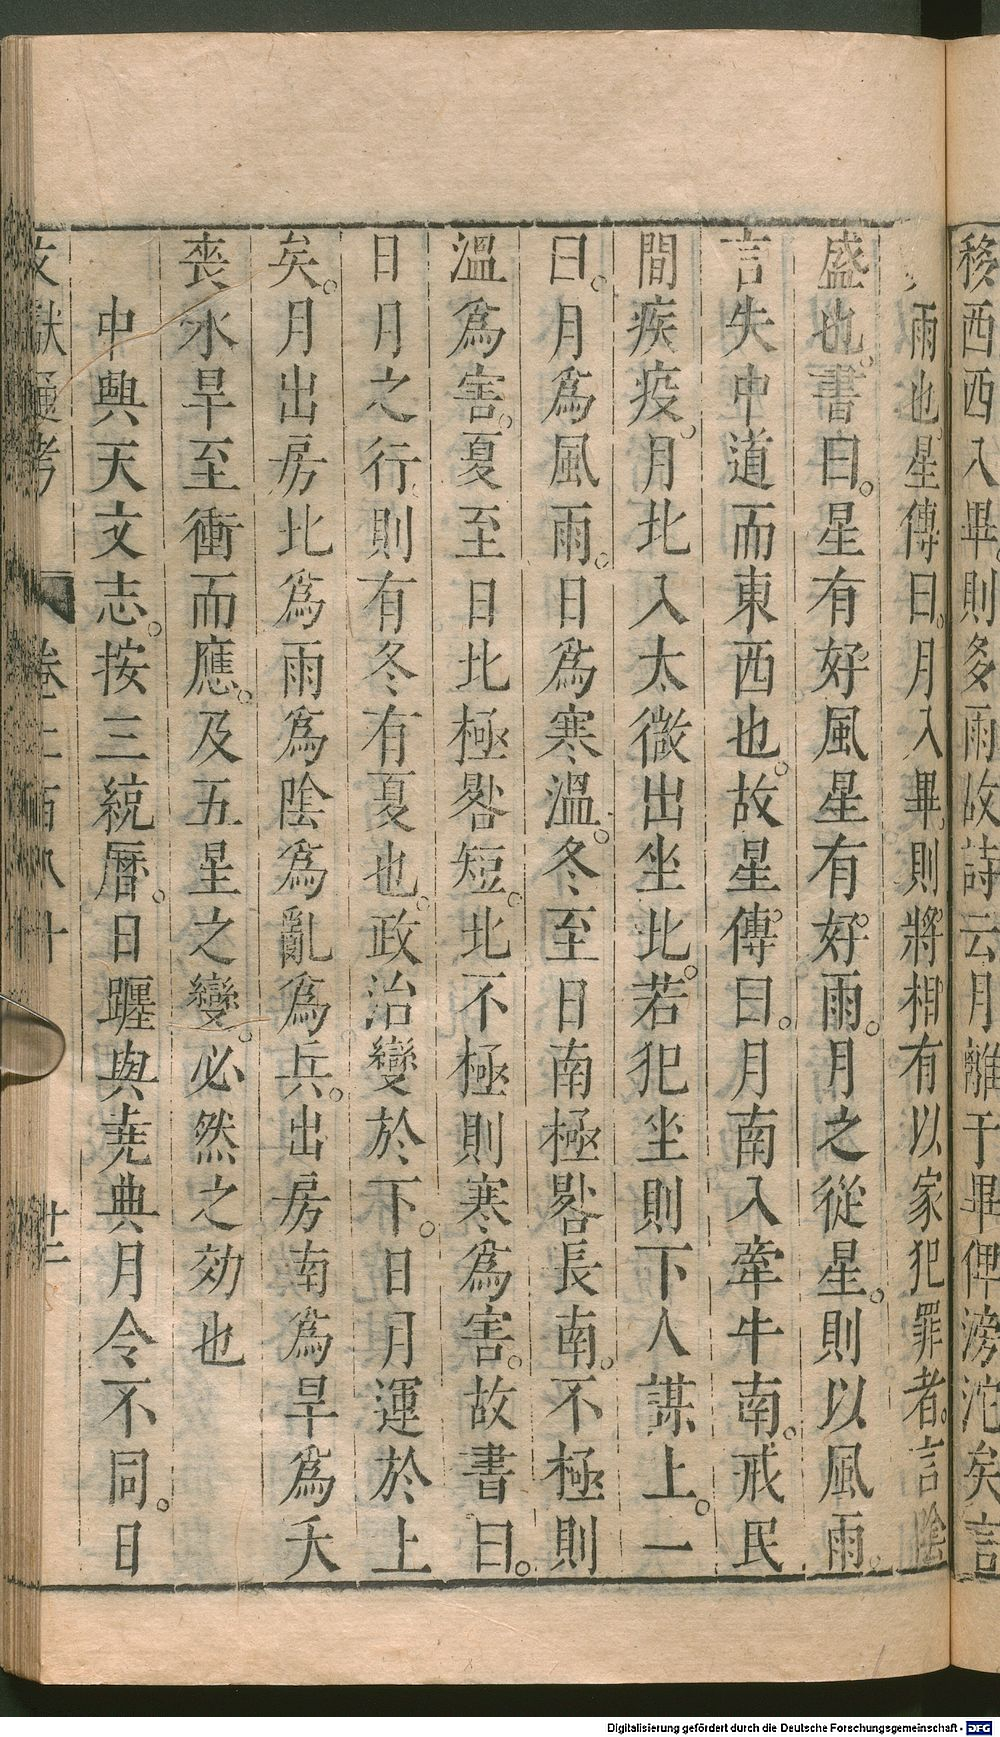 移西西入畢則多雨故詩云月離于畢俾滂沱矣言
雨也星傳曰月入畢則將相有以家犯罪者言陰
盛也書曰星有好風星有好雨月之從星則以風雨
言失中道而東西也故星傳曰月南入牽牛南戒民
間疾疫月北入太微出坐北若犯坐則下人謀上一
曰月為風雨日為寒溫冬至日南極晷長南不極則
溫為害夏至日北極晷短北不極則寒為害故書曰
日月之行則有冬有夏也政治變於下日月運於上
矣月出房北為雨為陰為亂為兵出房南為旱為夭
喪水旱至衝而應及五星之變必然之効也
中興天文志按三統曆日躔與堯典月令不同日
文獻通考 卷二百八十 廿三
Digitalisierung gefördert durch die Deutsche Forschungsgemeinschaft - DFG